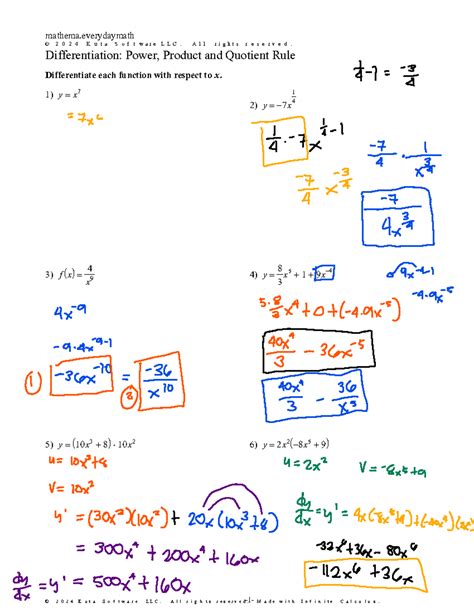 mathema.everydaymath
© 2024 Kuta Software LLC. All rights reserved.
Differentiation: Power, Product and Quotient Rule
Differentiate each function with respect to x.
1/4 - 1 = -3/4
1) y = x^7
= 7x^6
2) y = -7x^(1/4)
1/4 · -7x^(1/4 - 1)
-7/4 x^(-3/4)
-7/4 · 1/x^(3/4)
-7/(4x^(3/4))
3) f(x) = 4/x^9
4x^-9
-9·4x^(-9-1)
① -36x^-10 = -36/x^10 ②
4) y = 8/3 x^5 + 1 + 9x^-4
9x^(-4-1)
-4·9x^-5
5·8/3 x^4 + 0 + (-4·9x^-5)
40x^4/3 - 36x^-5
40x^4/3 - 36/x^5
5) y = (10x^3 + 8) · 10x^2
u = 10x^3 + 8
v = 10x^2
y' = (30x^2)(10x^2) + 20x(10x^3 + 8)
= 300x^4 + 200x^4 + 160x
dy/dx = y' = 500x^4 + 160x
6) y = 2x^2(-8x^5 + 9)
u = 2x^2 v = -8x^5 + 9
dy/dx = y' = 4x(-8x^5 + 9) + (-40x^4)(2x^2)
-32x^6 + 36x - 80x^6
-112x^6 + 36x
© 2024 Kuta Software LLC. All rights reserved. Made with Infinite Calculus.